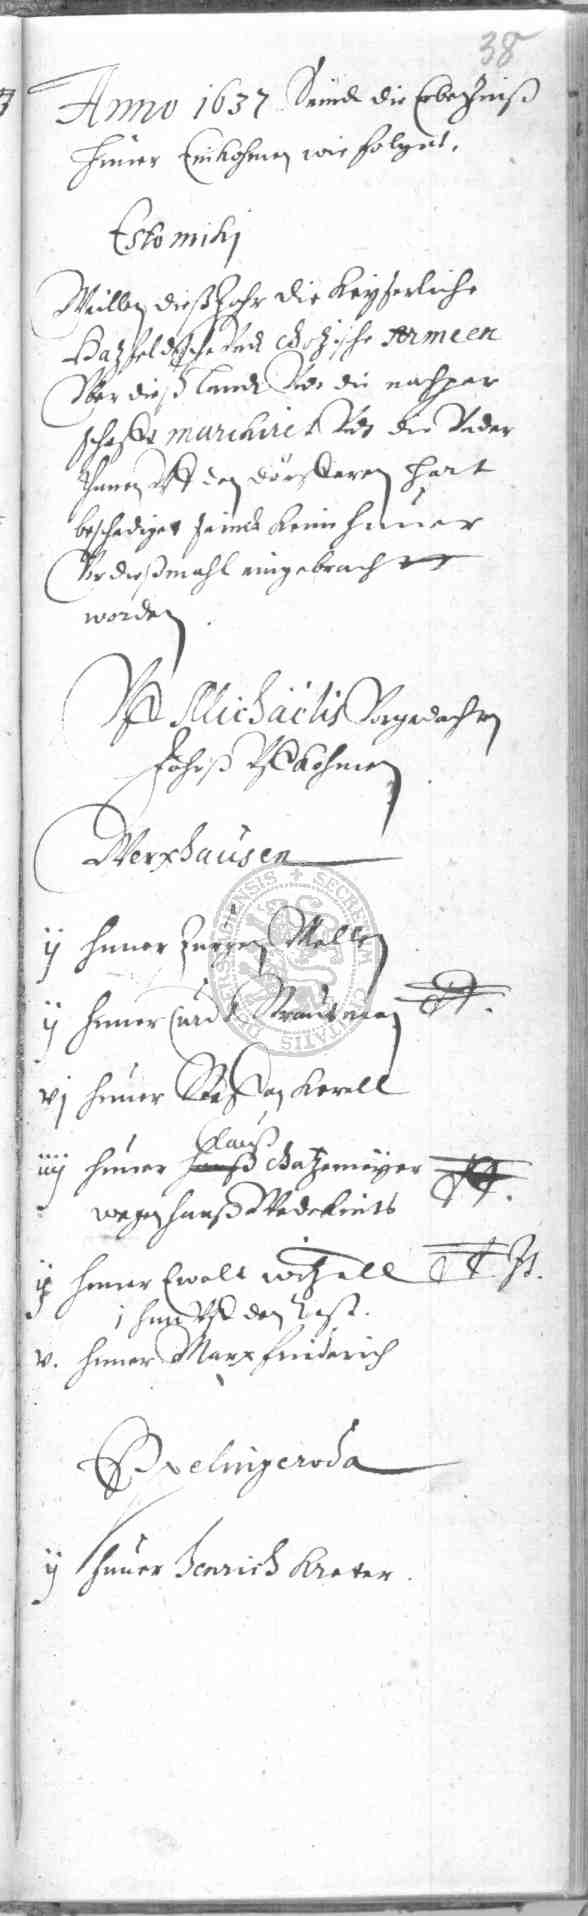 38
Anno 1637 Seind die Erbezinß
Hüner Einkohmen wie folget.
Estomihi
Weillen dieß Jahr die Keyserliche
Hatzfeldische Vnd Götzische Armeen
Vber dieß Landt Vnd die nachpar
schafft marchiret Vnd die Vnder
thanen Vff den dörfferen hart
beschediget seindt keine hüner
Vordießmahl eingebracht
worden
Vff Michäelis Vorgedachten
Jahrß Vffkohmen
Werxhausen
ij hüner Jürgen Mellen
ij hüner Curdt Trautman
vj hüner Steffan Kerll
Clauß
iiij hüner hanß Gatzemeyer
wegen hanß Wedekints
ij hüner Ewalt Witzell
j hun Vff den Rest.
v. hüner Marx friderich
Desingeroda
ij hüner Henrich Kreter.
SECRETUM CIVITATIS